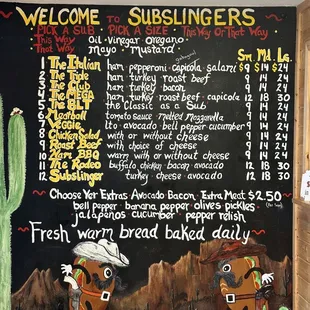 WELCOME TO SUBSLINGERS
PICK A SUB PICK A SIZE This Way Or That Way
This Way oil vinegar oregano
That Way mayo mustard
Sm. Md. Lg.
1 The Italian ham pepperoni capicola salami $9 $14 $24
2 The Triple ham turkey roast beef 9 14 24
3 The Club ham turkey bacon 9 14 24
4 The MEGA ham turkey roast beef capicola 12 18 30
5 The BLT the classic as a Sub 9 14 24
6 Meatball tomato sauce melted Mozzarella 9 14 24
7 Veggie lto avocado bell pepper cucumber 9 14 24
8 Chicken Salad with or without cheese 9 14 24
9 Roast Beef with choice of cheese 9 14 24
10 Yam BBQ warm with or without cheese 9 14 24
11 The Rodeo buffalo chicken bacon avocado 12 18 30
12 Subslinger turkey cheese avocado 12 18 30
Choose Yer Extras Avocado Bacon Extra Meat $2.50
bell pepper banana pepper olives pickles
jalapeños cucumber pepper relish
Fresh warm bread baked daily